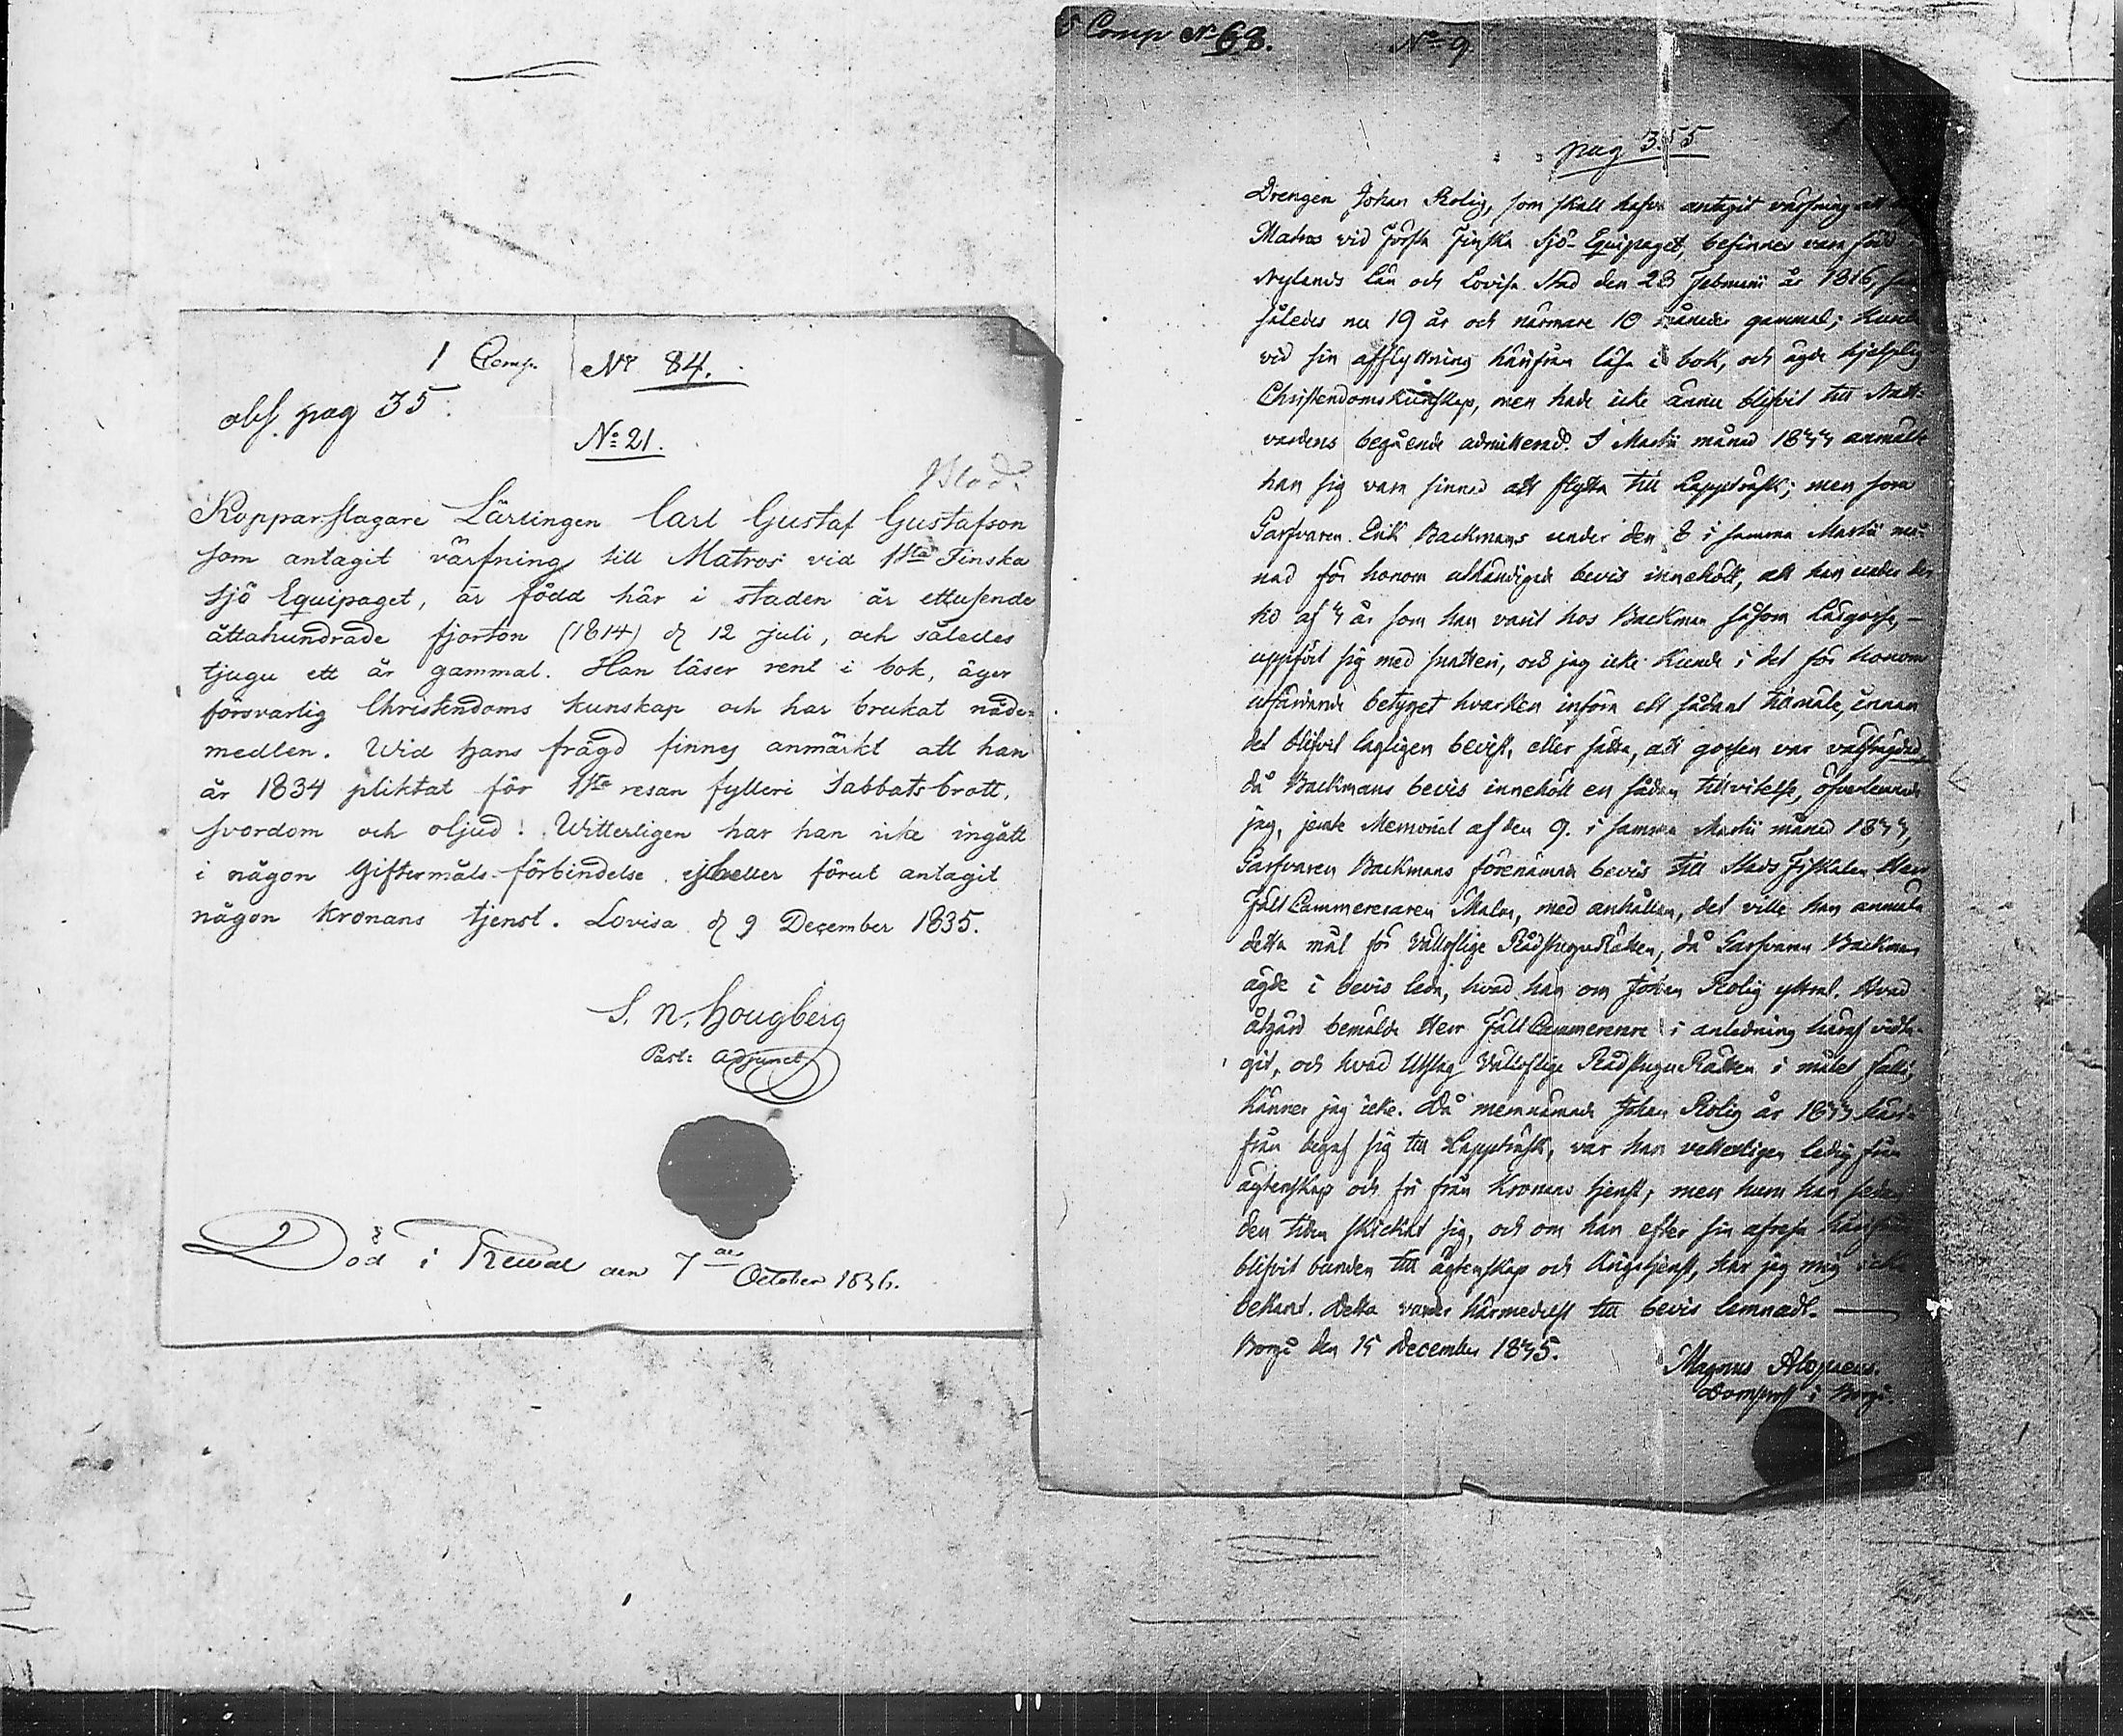 1 Comp. Nr 84.
abs. pag 35.
No: 21.
Kopparslagare Lärlingen Carl Gustaf Gustafson
som antagit värfning till Matros vid 1sta Finska
Sjö Equipaget, är född här i staden år ettusende
åttahundrade fjorton (1814) d 12 Juli, och således
tjugu ett år gammal. Han läser rent i bok, äger
försvarlig Christendoms kunskap och har brukat nåde-
medlen. Wid hans frägd finnes anmärkt att han
år 1834 pliktat för 1sta resan fylleri Sabbatsbrott,
svordom och oljud! Witterligen har han icke ingått
i någon Giftermåls-förbindelse ejheller förut antagit
någon Kronans tjenst. Lovisa d 9 December 1835.
S. N. Hougberg
Past: Adjunct
Död i Rewal den 7de October 1836.
Comp No 68. No 9
pag 355
Drengen Johan Rolig, som skall hafva antagit värfning
Matros vid Första Finska Sjö-Equipaget, befinnes vara född
Nylands Län och Lovisa Stad den 23 Februarii år 1816,
således nu 19 år och närmare 10 månader gammal; kunde
vid sin afflyttning härifrån läsa i bok, och ägde hjelplig
Christendomskunskap, men hade icke ännu blifvit till Natt-
vardens begående admitterad. I Martii månad 1833 anmälte
han sig vara sinnad att flytta till Lappträsk; men som
Garfvaren Erik Backmans under den 8 i samma Martii må-
nad för honom uthändigade bevis innehöll, att han under den
tid af 3 år som han varit hos Backman såsom Lärgosse,
uppfört sig med snatteri, och jag icke kunde i det för honom
utfärdande betyget hvarken införa ett sådant tilmäle, innan
det blifvit lagligen bevist, eller sätta, att gossen var välfrägdad,
då Backmans bevis innehöll en sådan tillvitelse, öfverlemnade
jag, jemte Memorial af den 9. i samma Martii månad 1833,
Garfvaren Backmans förenämnde bevis till Stads Fiskalen Herr
Fält Cammereraren Malm, med anhållan, det ville han anmäla
detta mål för Vällofliga RådstuguRätten, då Garfvaren Backman
ägde i bevis leda, hvad han om Johan Rolig yttrat. Hvad
åtgärd bemälde Herr Fält Cammererare i anledning häraf vidta-
git, och hvad Utslag Vällofliga RådstuguRätten i målet fällt,
känner jag icke. Då mernämnde Johan Rolig år 1833 häri-
från begaf sig till Lappträsk, var han vetterligen ledig från
ägtenskap och fri från Kronans tjenst; men huru han sedan
den tiden skickat sig, och om han efter sin afresa härifrån
blifvit bunden till ägtenskap och Krigstjenst, har jag mig icke
bekant. Detta varder härmedelst till bevis lemnadt.
Borgå den 15 December 1835.
Magnus Alopaeus.
Domprost i Borgå.